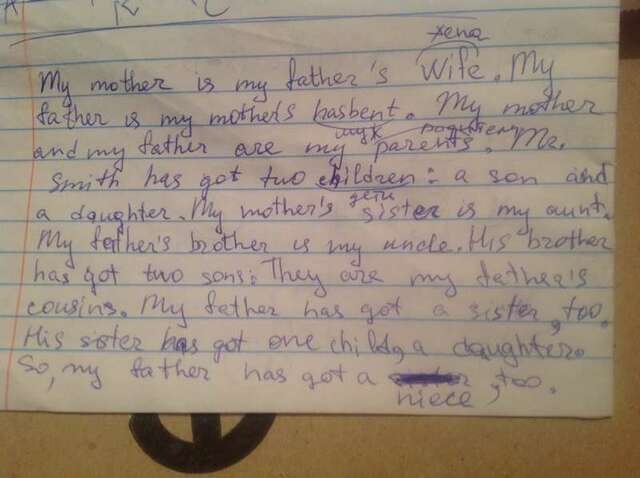 жена
My mother is my father's Wife. My
father is my mother's hasbent. My mother
муж родители
and my father are my parents. Mr.
Smith has got two children: a son and
дети
a daughter. My mother's sister is my aunt.
My father's brother is my uncle. His brother
has got two sons: They are my father's
cousins. My father has got a sister, too.
His sister has got one child, a daughter.
So, my father has got a , too.
niece